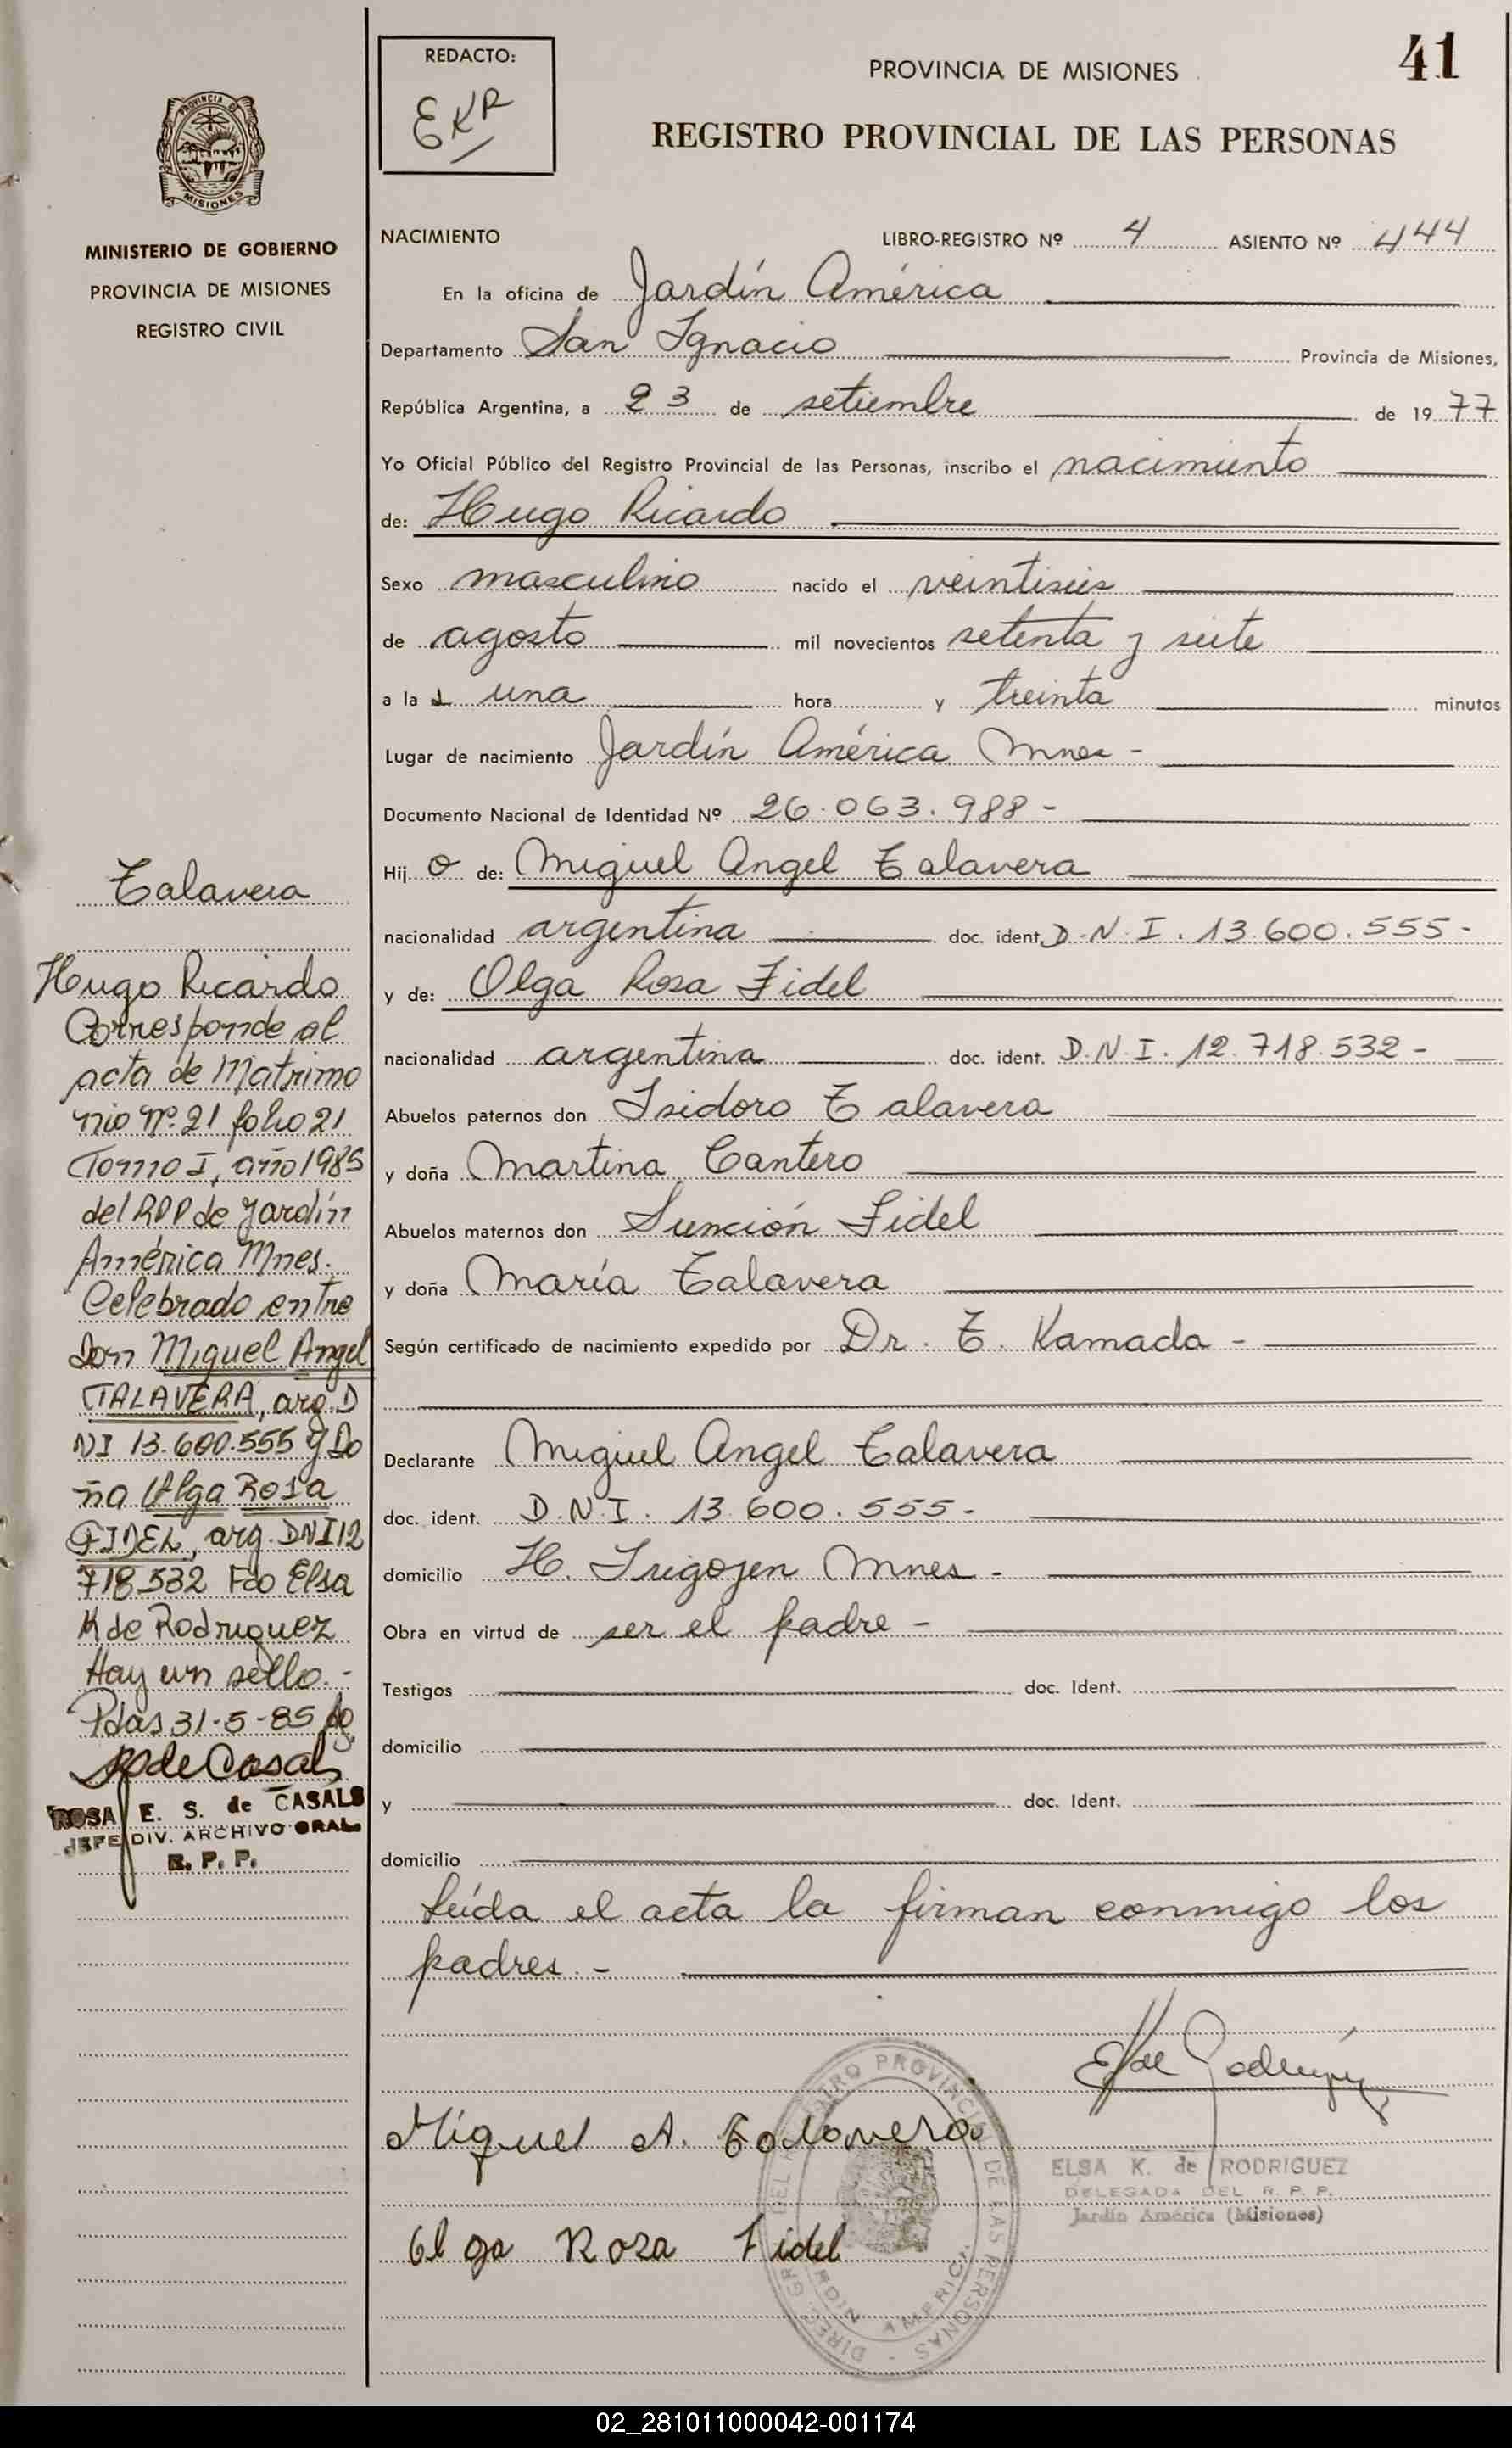 41
REDACTO:
EKR
PROVINCIA DE MISIONES
REGISTRO PROVINCIAL DE LAS PERSONAS
PROVINCIA DE
MISIONES
MINISTERIO DE GOBIERNO
PROVINCIA DE MISIONES
REGISTRO CIVIL
NACIMIENTO LIBRO-REGISTRO Nº 4 ASIENTO Nº 444
En la oficina de Jardín América
Departamento San Ignacio Provincia de Misiones,
República Argentina, a 23 de setiembre de 1977
Yo Oficial Público del Registro Provincial de las Personas, inscribo el nacimiento
de: Hugo Ricardo
Sexo masculino nacido el veintiseis
de agosto mil novecientos setenta y siete
a la una hora y treinta minutos
Lugar de nacimiento Jardín América Mnes -
Documento Nacional de Identidad Nº 26.063.988 -
Hijo de: Miguel Angel Talavera
nacionalidad argentina doc. ident. D.N.I. 13.600.555 -
y de: Olga Rosa Fidel
nacionalidad argentina doc. ident. D.N.I. 12.718.532 -
Abuelos paternos don Isidoro Talavera
y doña Martina Cantero
Abuelos maternos don Sunción Fidel
y doña María Talavera
Según certificado de nacimiento expedido por Dr. T. Kamada -
Declarante Miguel Angel Talavera
doc. ident. D.N.I. 13.600.555 -
domicilio H. Irigoyen Mnes -
Obra en virtud de ser el padre -
Testigos doc. Ident.
domicilio
y doc. Ident.
domicilio
Leída el acta la firman conmigo los
padres. -
Talavera
Hugo Ricardo
Corresponde al
acta de Matrimo
nio Nº 21 folio 21
Tomo I, año 1985
del RPP de Jardín
América Mnes.
Celebrado entre
Don Miguel Angel
TALAVERA, arg. D
NI 13.600.555 y Do
ña Olga Rosa
FIDEL, arg. DNI 12
718.532 Fdo Elsa
K de Rodriguez
Hay un sello. -
Pdas 31-5-85
S de Casals
ROSA E. S. de CASALS
JEFE DIV. ARCHIVO GRAL.
R. P. P.
E K de Rodriguez
Miguel A. Talavera
ELSA K. de RODRIGUEZ
DELEGADA DEL R. P. P.
Jardín América (Misiones)
Olga Rosa Fidel
DIREC. GRAL. DEL REGISTRO PROVINCIAL DE LAS PERSONAS -
JARDIN AMERICA
02_281011000042-001174